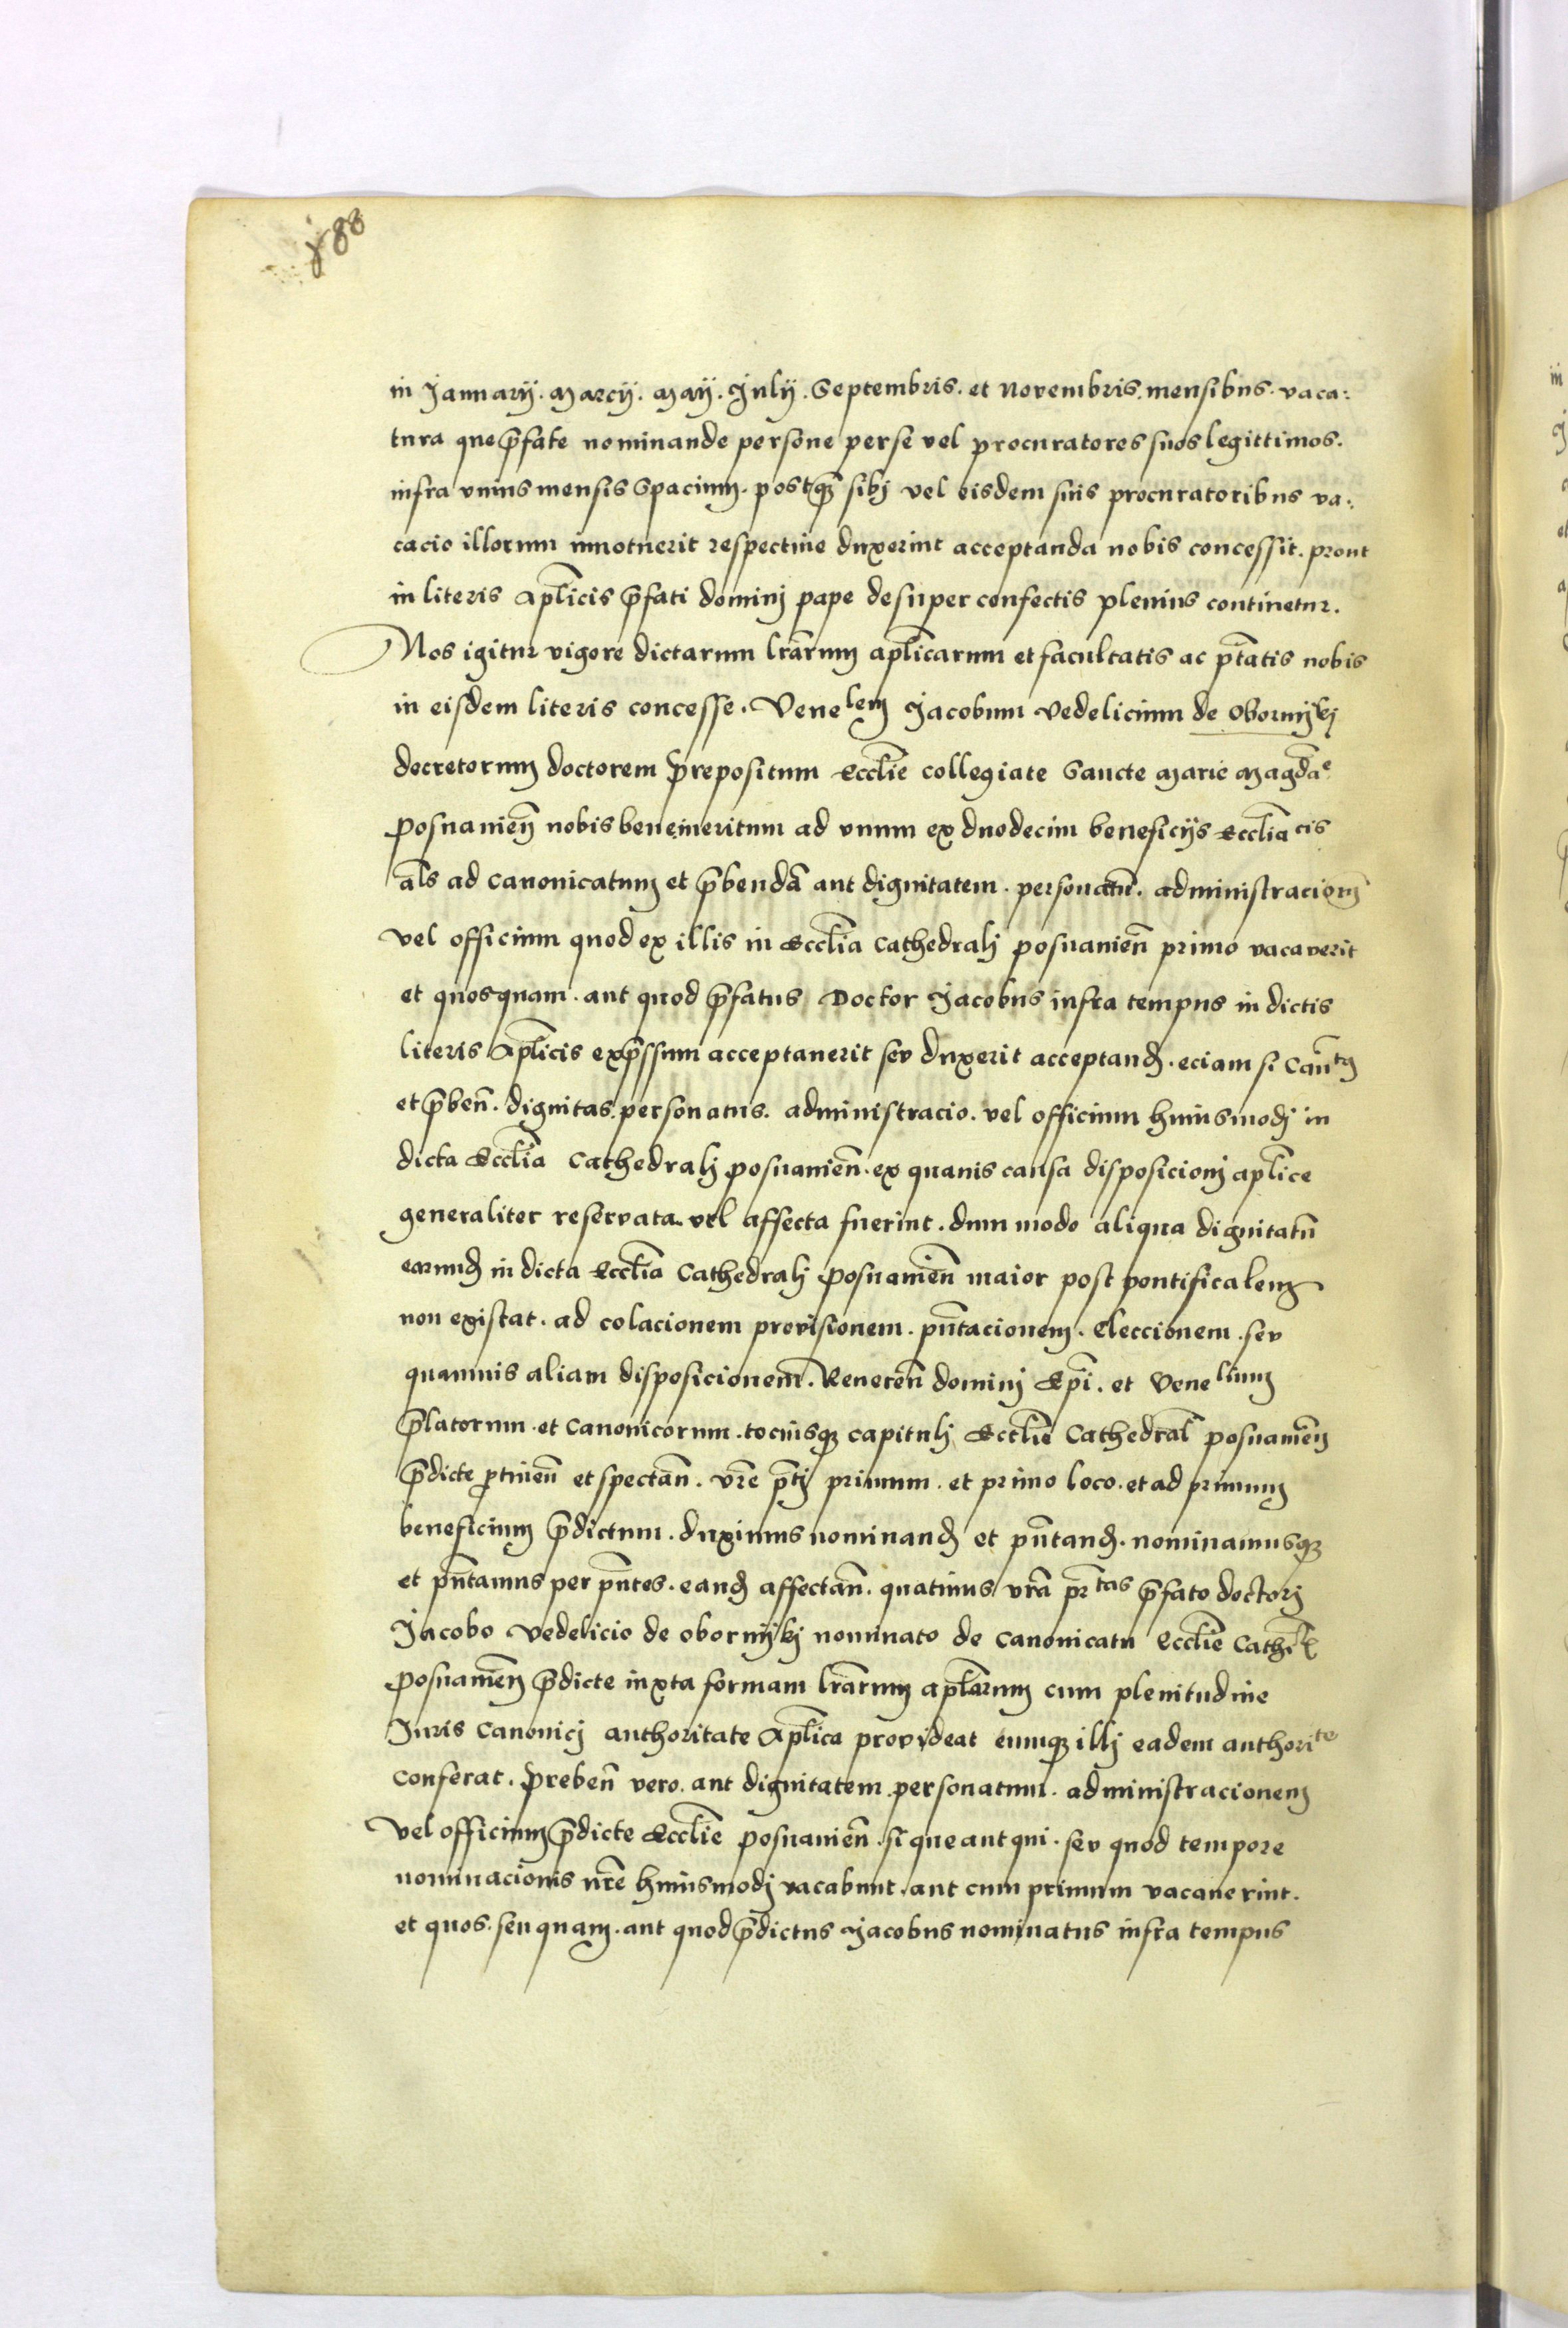 188
in Januarij. Marcij. Maij. Julij. Septembris. et Novembris. mensibus. vaca:
tura que p̄fate nominande persone perse vel procuratores suos legittimos.
infra vnius mensis Spacium. postq̄ȝ sibj vel eisdem suis procuratoribus va:
cacio illorum innotuerit respectiue duxerint acceptanda nobis concessit. prout
in literis Aplicis p̄fati dominj pape desuper confectis plenius continetur.
Nos igitur vigore dictarum lr̄arum aplicarum et facultatis ac ptātis nobis
in eisdem literis concesse. Venelem Jacobum Vedelicium de Obornijkj
decretorum doctorem Prepositum Ecclīe collegiate Sancte Marie Magdae
Posnanieñ nobis benemeritum ad vnum ex duodecim beneficijs Ecclīacis
al̄s ad canonicatum et p̄bendā aut dignitatem. personatū. administracioem̄
vel officium quod ex illis in Ecclīa Cathedralj posnanieñ primo vacaverit
et quosquam. aut quod p̄fatus Doctor Jacobus infra tempus in dictis
literis Aplicis exp̄ssum acceptauerit sev duxerit acceptand̄. eciam si Canotꝫ
et p̄beñ. dignitas. personatus. administracio. vel officium huiusmodj in
dicta Ecclīa Cathedralj posnanieñ. ex quauis causa disposicionj aplice
generaliter reservata. vel affecta fuerint. dum modo aliqua dignitatū
earund̄ in dicta Ecclīa Cathedralj Posnanieñ maior post pontificalem
non existat. ad colacionem provisionem. pn̄tacionem. Eleccionem. sev
quamuis aliam disposicionem. Reverēn dominj Epī. et Venelium
p̄latorum. et Canonicorum. tociusqȝ capitulj Ecclīe Cathedral̄ posnanieñ
p̄dicte ptineñ et spectañ. vr̄e pt̄j primum. et primo loco. et ad primum
beneficium p̄dictum. duximus nominand̄ et pn̄tand̄. nominamusqȝ
et pn̄tamus per pn̄tes. eand̄ affectañ. quatinus vr̄a prtas p̄fato doctorj
Jacobo Vedelicio de obornijkj nominato de Canonicatu Ecclīe Cathl̄
Posnanieñ p̄dicte iuxta formam lr̄arum aplarum cum plenitudine
Juris Canonicj authoritate Aplica provideat eumqȝ illj eadem authorite
Conferat. Prebeñ vero. aut dignitatem. personatum. administracionem
vel officium p̄dicte Ecclīe posnanieñ. si que aut qui. sev quod tempore
nominacionis nr̄e huiusmodj vacabunt. aut cum primum vacauerint.
et quos. seu quam. aut quod p̄dictus Jacobus nominatus infra tempus